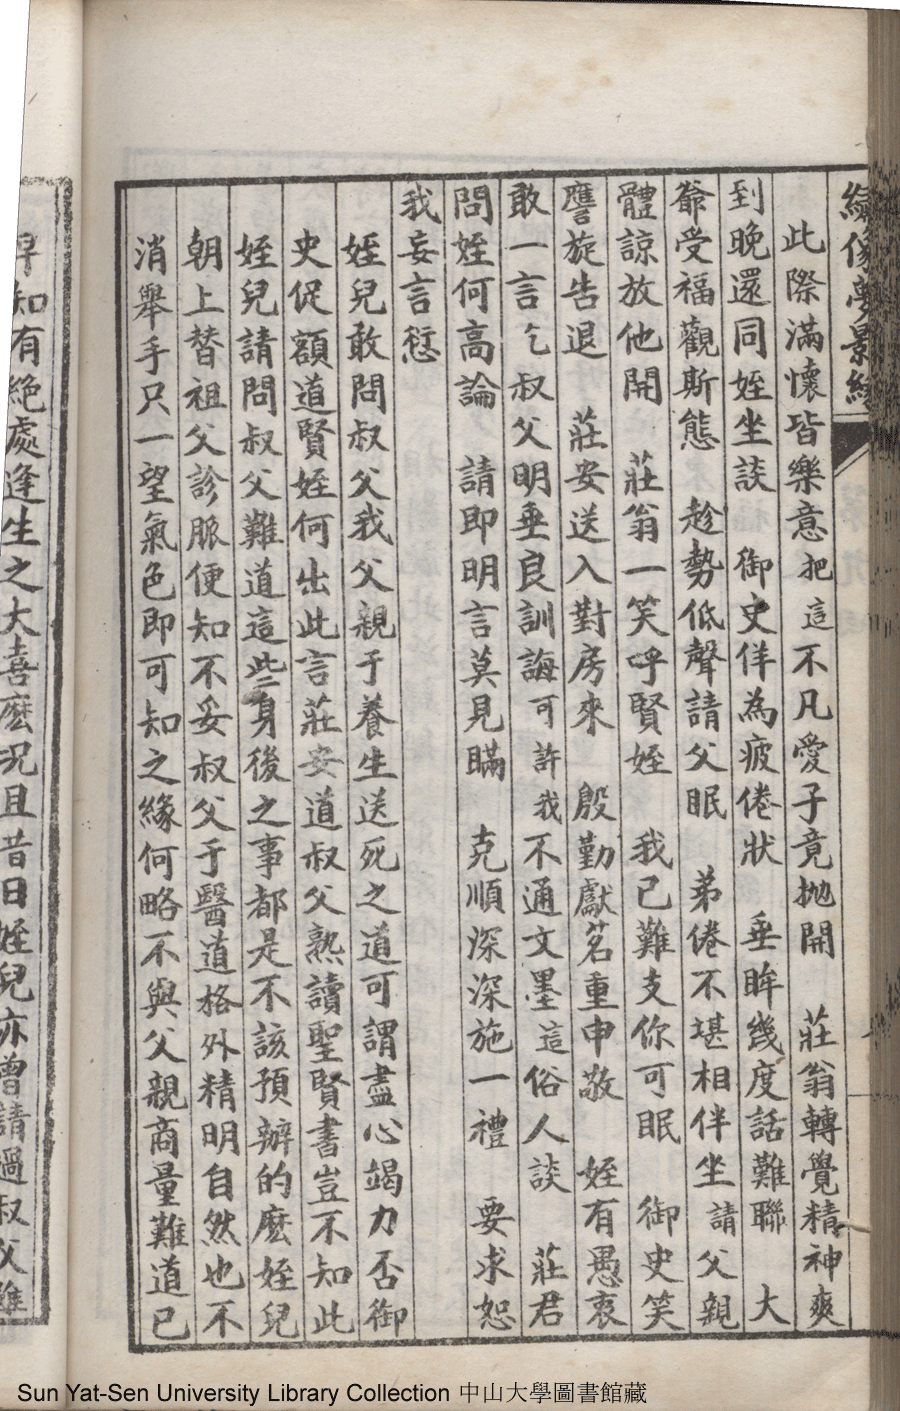 繡像夢景緣
此際滿懷皆樂意 把這不凡愛子竟拋開 莊翁轉覺精神爽
到晚還同姪坐談 御史佯為疲倦狀 垂眸幾度話難聯 大
爺受福觀斯態 趁勢低聲請父眠 弟倦不堪相伴坐 請父親
體諒放他開 莊翁一笑呼賢姪 我已難支你可眠 御史笑
譍旋告退 莊安送入對房來 殷勤獻茗重申敬 姪有愚衷
敢一言 乞叔父明垂良訓誨 可許我不通文墨這俗人談 莊君
問姪何高論 請即明言莫見瞞 克順深深施一禮 要求恕
我妄言愆
姪兒敢問叔父我父親于養生送死之道可謂盡心竭力否御
史促額道賢姪何出此言莊安道叔父熟讀聖賢書豈不知此
姪兒請問叔父難道這些身後之事都是不該預辦的麼姪兒
朝上替祖父診脈便知不妥叔父于醫道格外精明自然也不
消舉手只一望氣色即可知之緣何略不與父親商量難道已
早知有絕處逢生之大喜麼况且昔日姪兒亦曾請過叔父雖
Sun Yat-Sen University Library Collection 中山大學圖書館藏